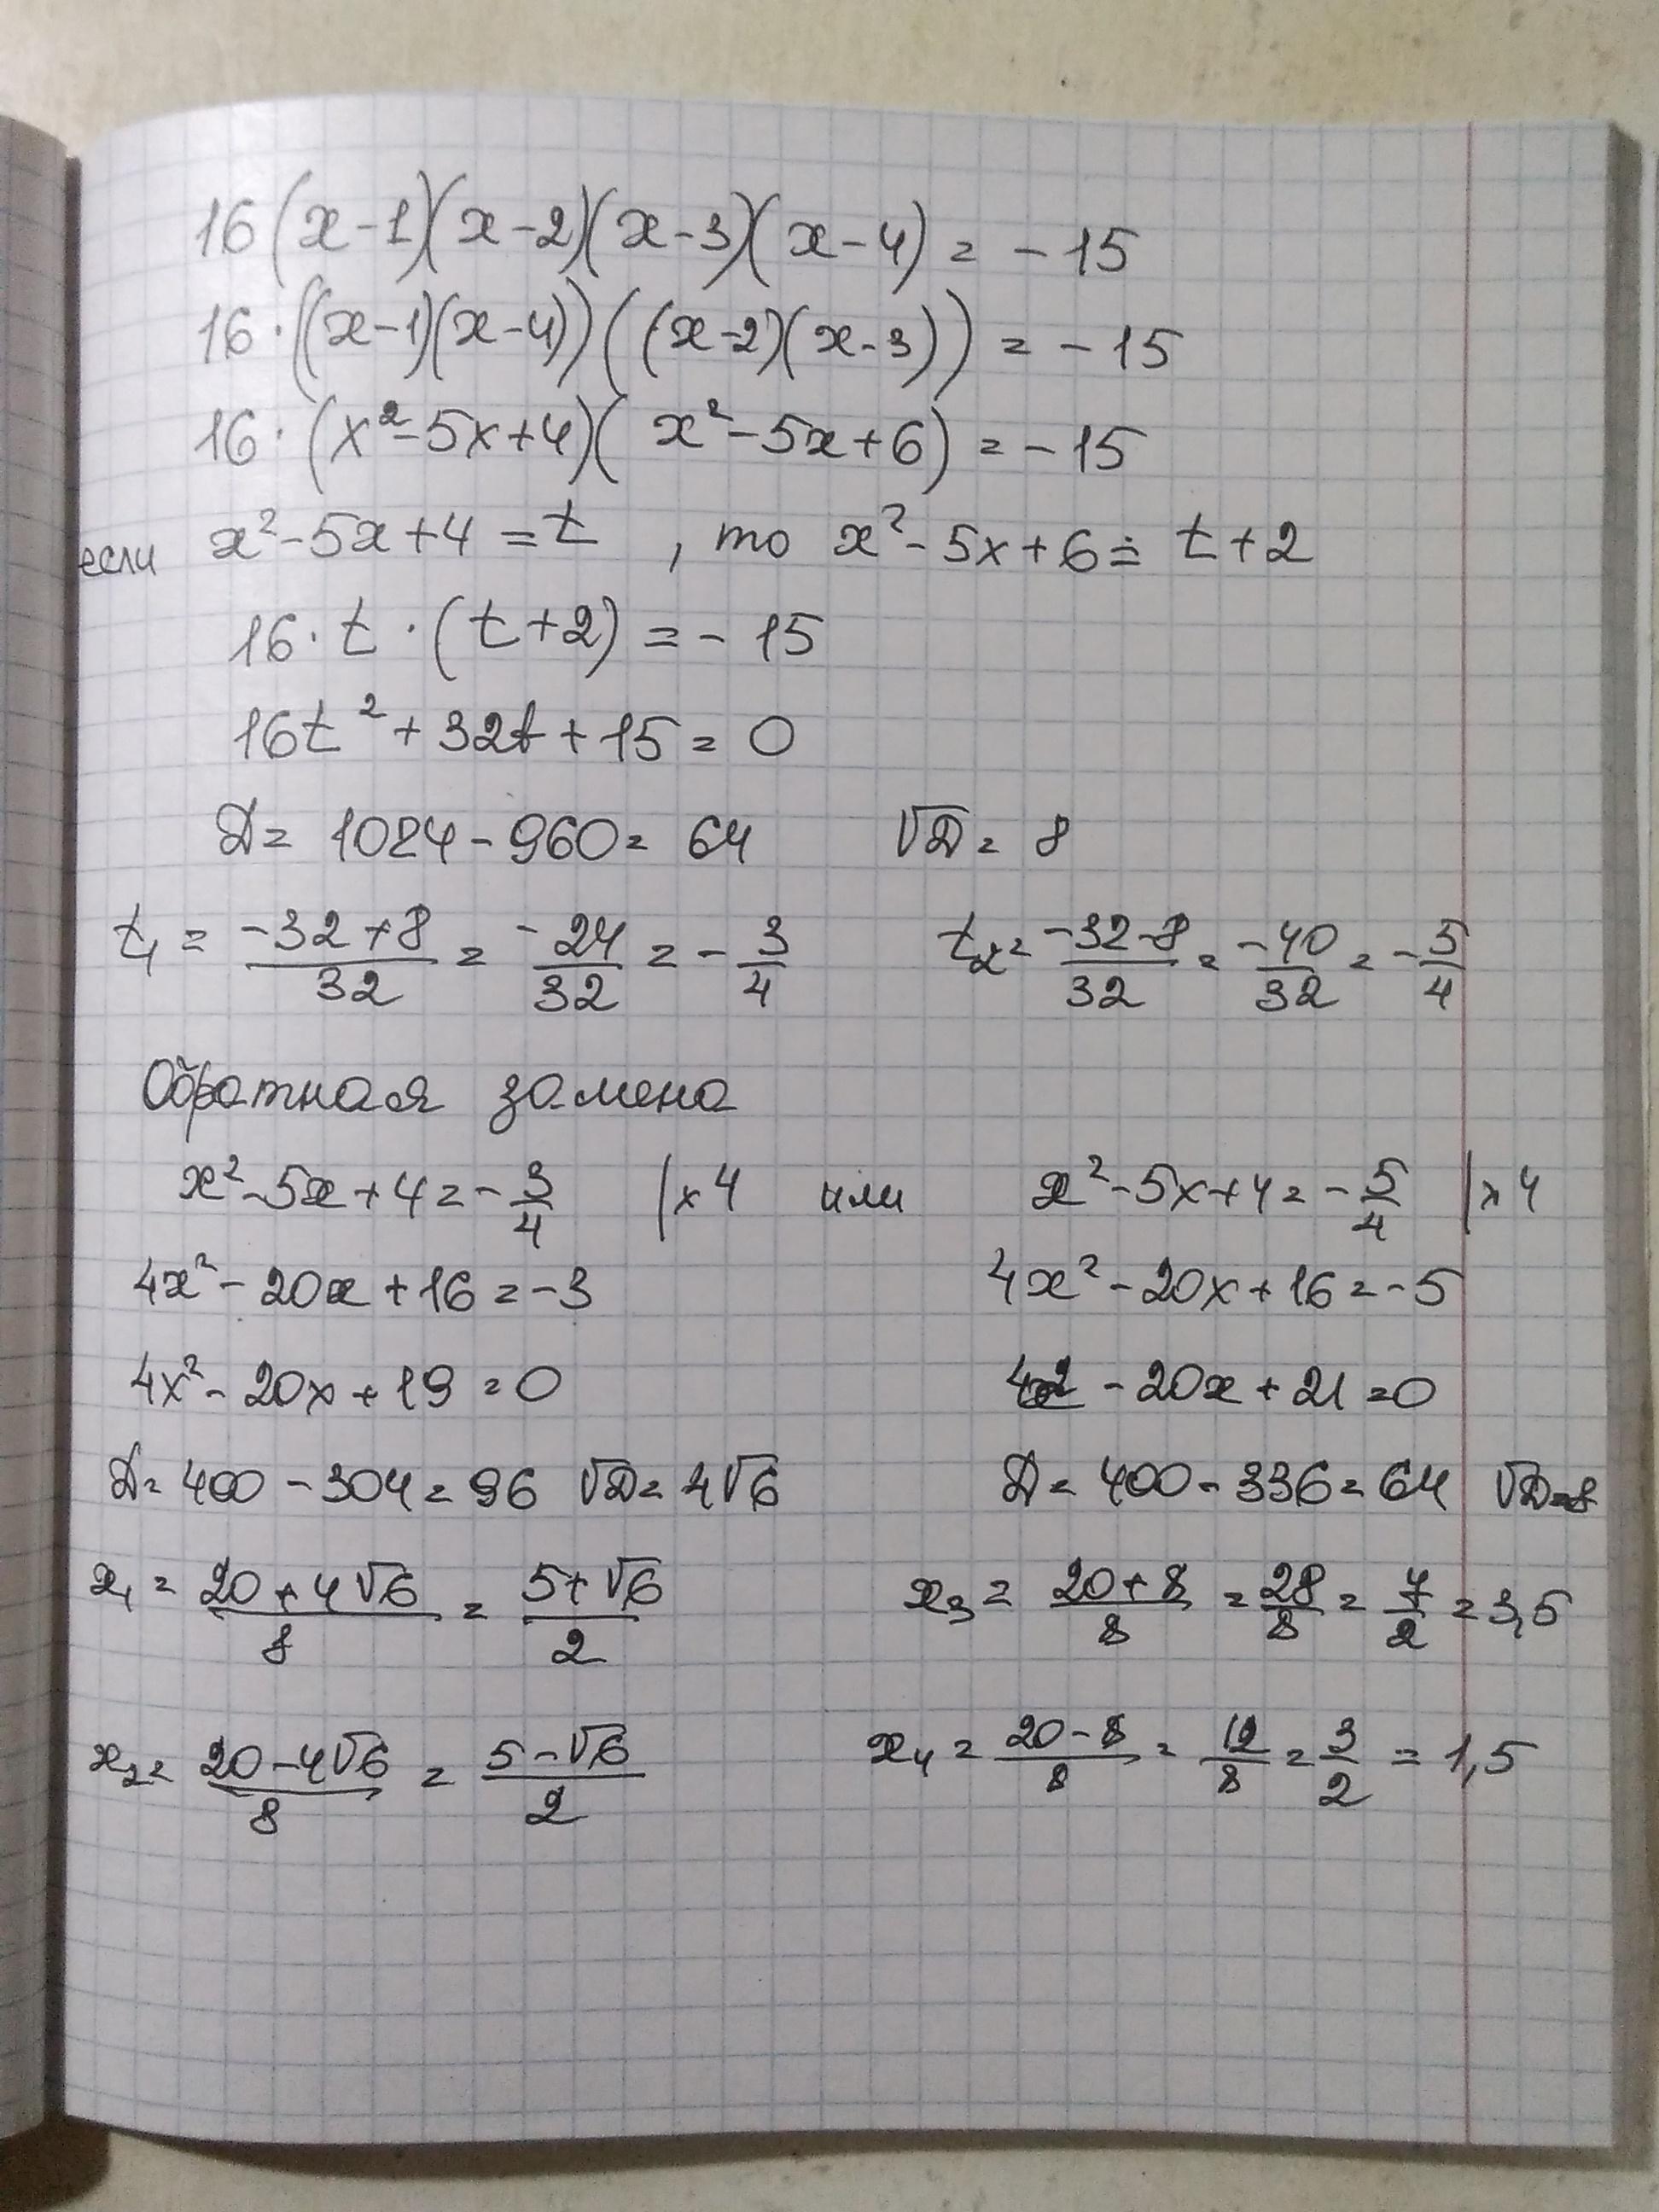 16(x-1)(x-2)(x-3)(x-4) = -15
16·((x-1)(x-4))((x-2)(x-3)) = -15
16·(x²-5x+4)(x²-5x+6) = -15
если x²-5x+4 = t , то x²-5x+6 = t+2
16·t·(t+2) = -15
16t²+32t+15 = 0
D = 1024-960 = 64 √D = 8
t₁ = (-32+8)/32 = -24/32 = -3/4 t₂ = (-32-8)/32 = -40/32 = -5/4
Обратная замена
x²-5x+4 = -3/4 |×4 или x²-5x+4 = -5/4 |×4
4x²-20x+16 = -3 4x²-20x+16 = -5
4x²-20x+19 = 0 4x²-20x+21 = 0
D = 400-304 = 96 √D = 4√6 D = 400-336 = 64 √D = 8
x₁ = (20+4√6)/8 = (5+√6)/2 x₃ = (20+8)/8 = 28/8 = 7/2 = 3,5
x₂ = (20-4√6)/8 = (5-√6)/2 x₄ = (20-8)/8 = 12/8 = 3/2 = 1,5